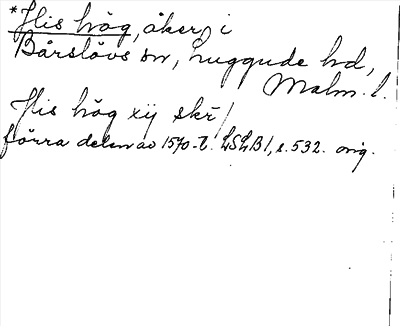 *His hög, åker i
Bårslövs sn, Luggude hd,
Malm. l.
His hög xij skr̄/
förra delen av 1570-t. LSLB 1, s. 532. orig.